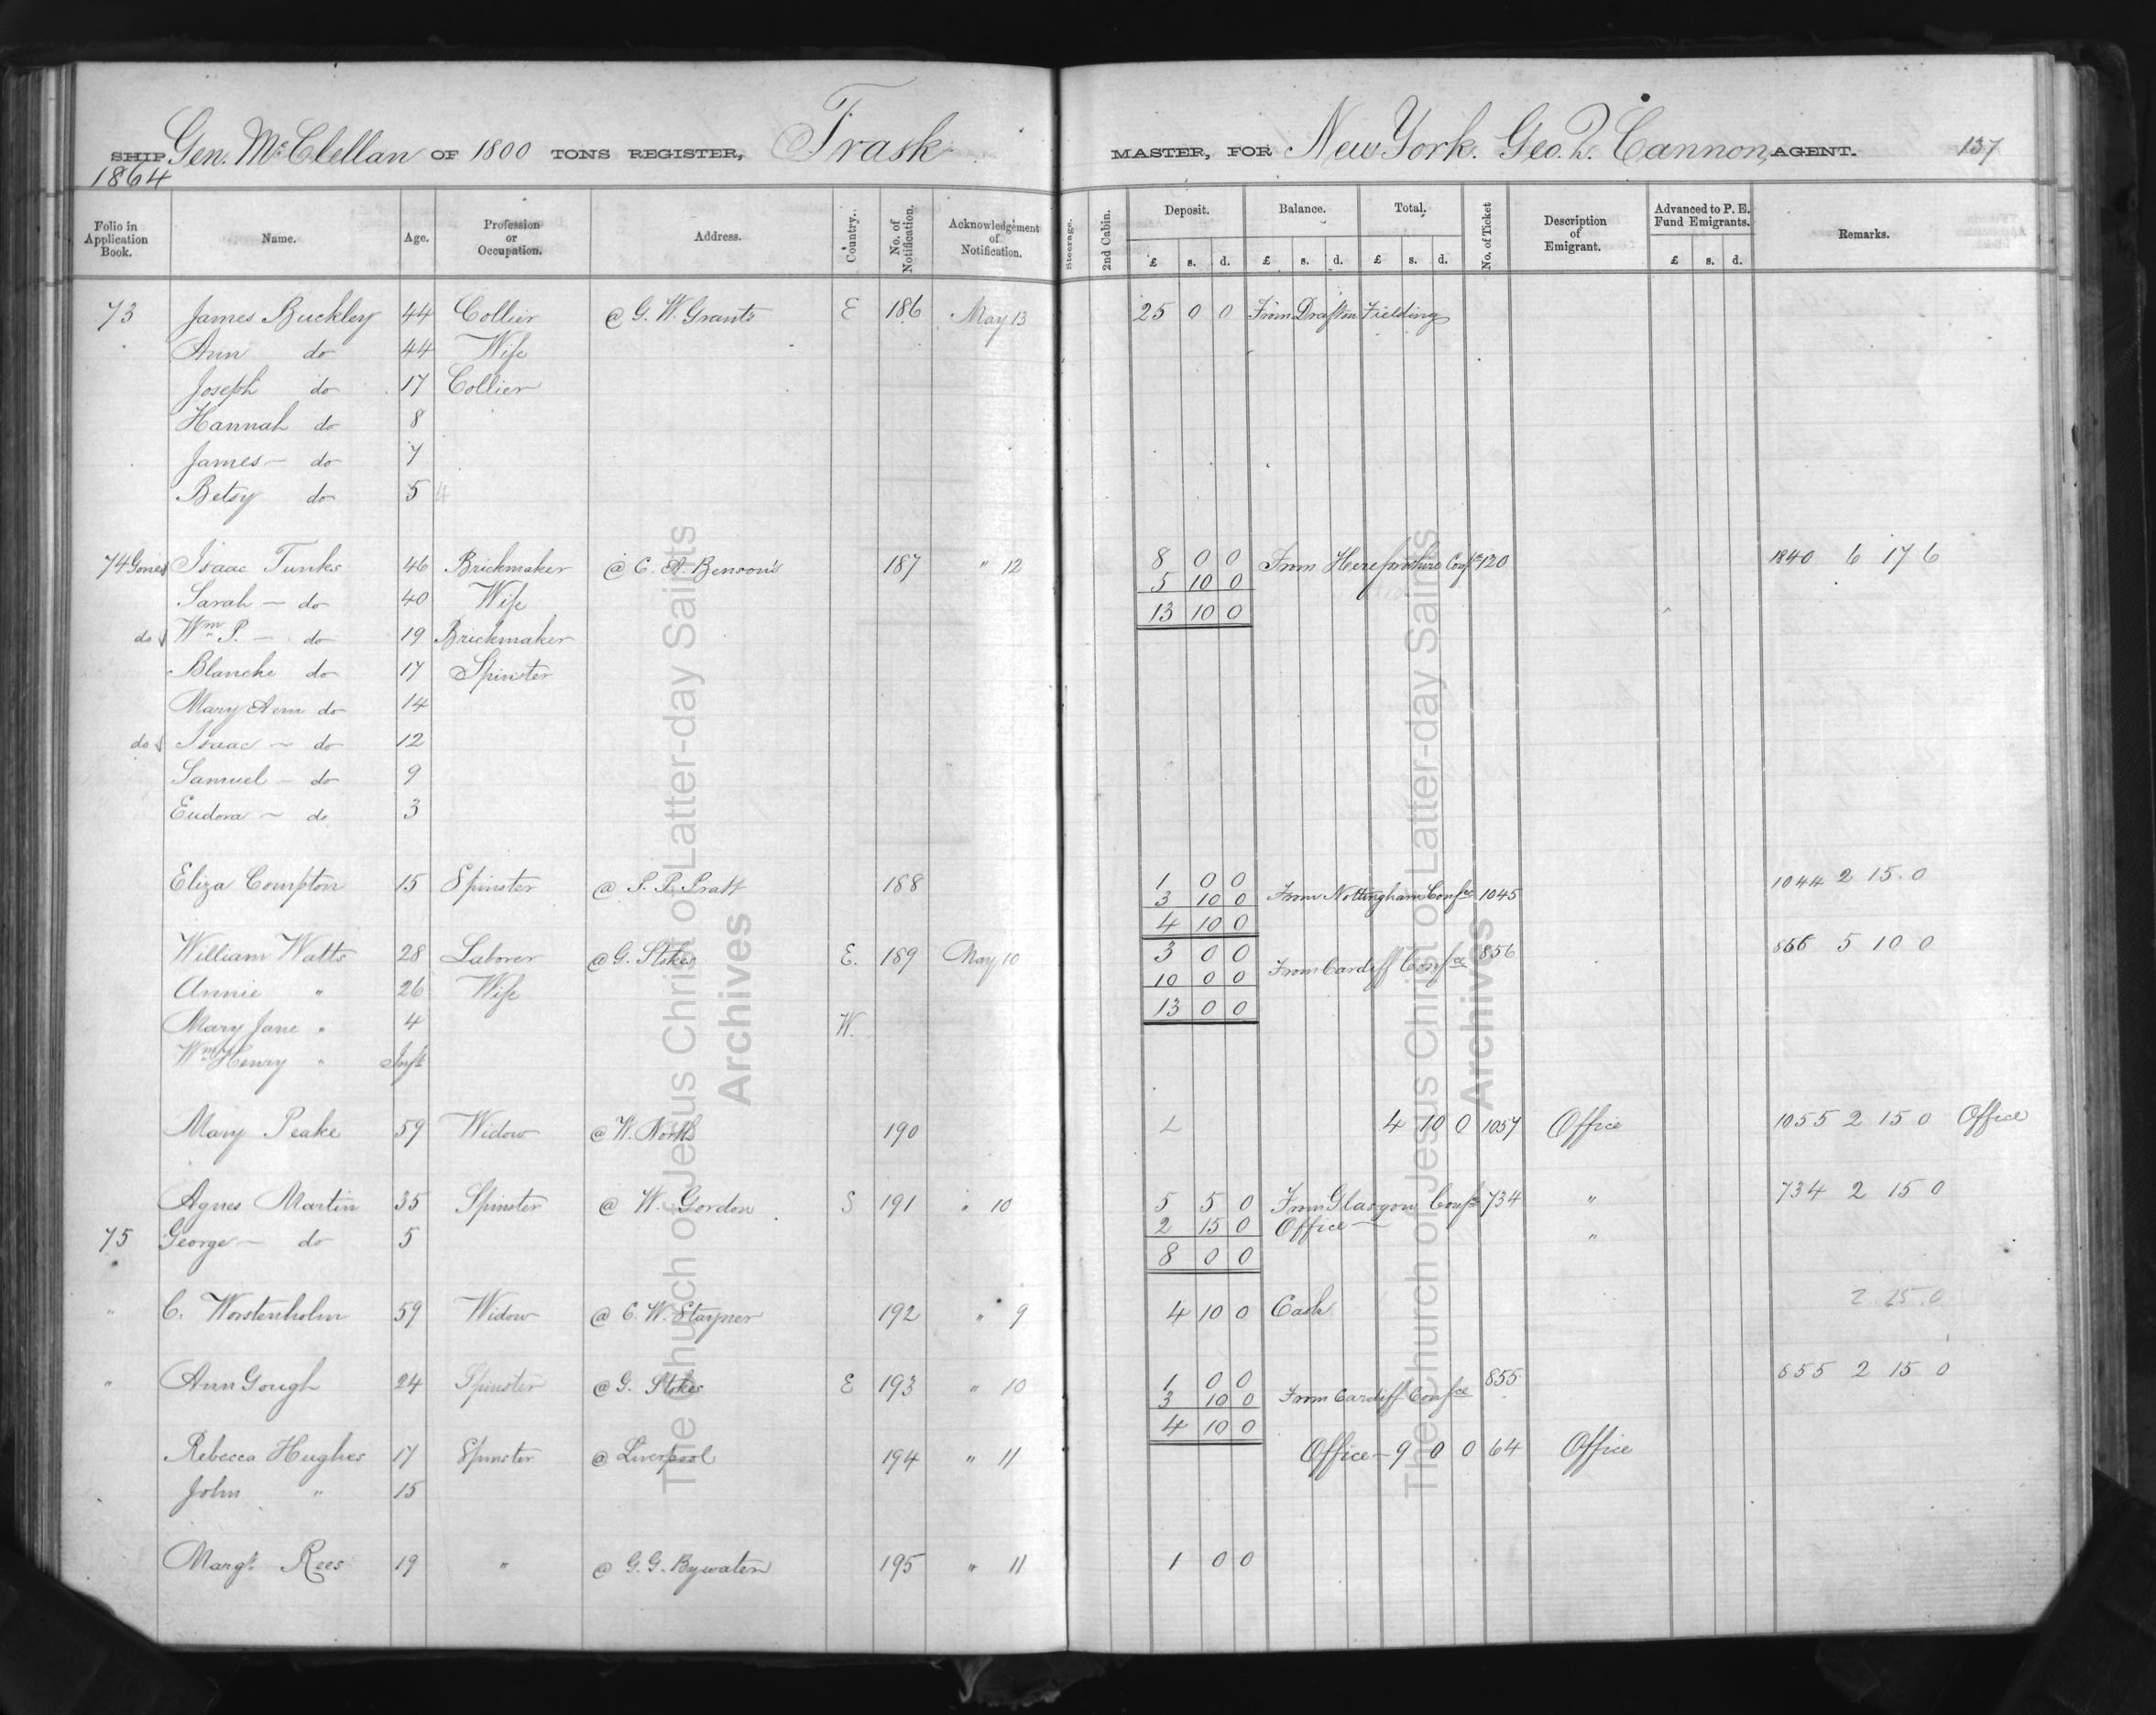 SHIP Gen. McClellan OF 1800 TONS REGISTER, Trask MASTER, FOR New York. Geo. Q. Cannon, AGENT. 137
1864
Folio in Application Book. Name. Age. Profession or Occupation. Address. Country. No. of Notification. Acknowledgement of Notification. Steerage. 2nd Cabin. Deposit. Balance. Total. No. of Ticket Description of Emigrant. Advanced to P. E. Fund Emigrants. Remarks.
£ s. d. £ s. d. £ s. d. £ s. d.
73 James Buckley 44 Collier @ G. W. Grants E 186 May 13 25 0 0 From Draft on Fielding
Ann do 44 Wife
Joseph do 17 Collier
Hannah do 8
James - do 7
Betsy do 5 4
74 Isaac Tunks 46 Brickmaker @ E. A. Benson's 187 " 12 8 0 0 From Herefordshire Confce 720 1840 6 17 6
5 10 0
Sarah - do 40 Wife 13 10 0
do Wm P. - do 19 Brickmaker
Blanche do 17 Spinster
Mary Ann do 14
do Isaac - do 12
Samuel - do 9
Eudora - do 3
Eliza Compton 15 Spinster @ P. P. Pratt 188 1 0 0 1044 2 15.0
3 10 0 From Nottingham Confce 1045
4 10 0
William Watts 28 Laborer @ G. Stokes E. 189 May 10 3 0 0 856 866 5 10 0
Annie " 26 Wife 10 0 0 From Cardiff Confce
Mary Jane " 4 W. 13 0 0
Wm Henry " Inft
Mary Peake 59 Widow @ W. North 190 4 10 0 1057 Office 1055 2 15 0 Office
Agnes Martin 35 Spinster @ W. Gordon S 191 " 10 5 5 0 From Glasgow Confce 734 " 734 2 15 0
2 15 0 Office -
75 George - do 5 8 0 0 "
" C. Worstenholm 59 Widow @ C. W. Stayner 192 " 9 4 10 0 Cash 2 15.0
" Ann Gough 24 Spinster @ G. Stokes E 193 " 10 1 0 0 855 855 2 15 0
3 10 0 From Cardiff Confce
4 10 0
Rebecca Hughes 17 Spinster @ Liverpool 194 " 11 Office - 9 0 0 64 Office
John " 15
Margt. Rees 19 " @ G. G. Bywater 195 " 11 1 0 0
The Church of Jesus Christ of Latter-day Saints
Archives
The Church of Jesus Christ of Latter-day Saints
Archives